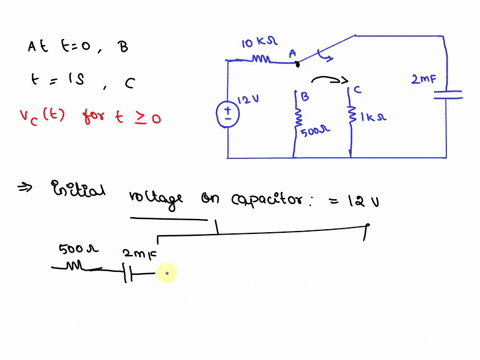 At t=0, B
t = 1s, C
Vc(t) for t ≥ 0
10KΩ
A
12V
+
−
B
500Ω
C
1kΩ
2mF
⇒ Initial voltage on capacitor: = 12V
500Ω
2mF